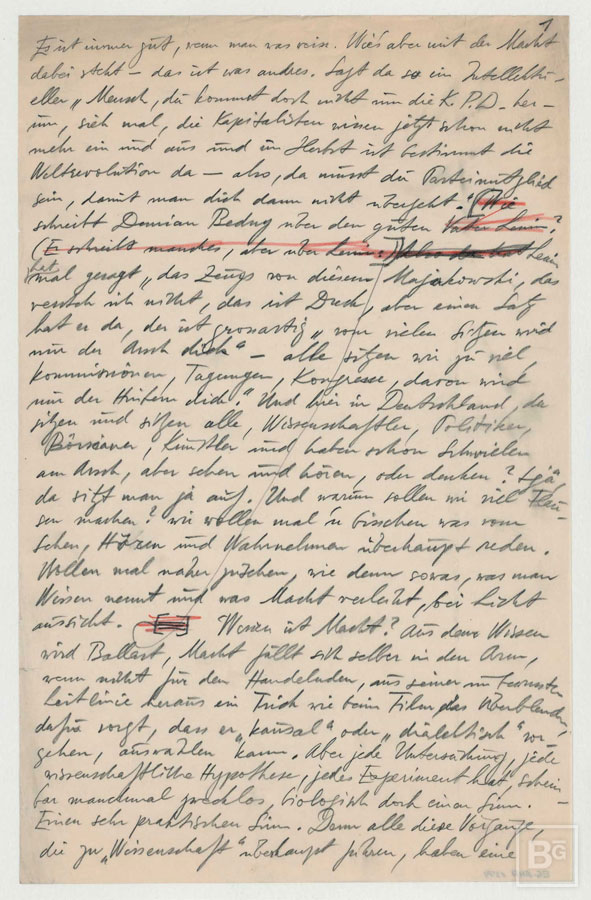 1
Es ist immer gut, wenn man was weiss. Wie's aber mit der Macht
dabei steht – das ist was andres. Sagt da so ein Intellektu-
eller „Mensch, du kommst doch nicht um die K.P.D. her-
um, sieh mal, die Kapitalisten wissen jetzt schon nicht
mehr ein und aus und im Herbst ist bestimmt die
Weltrevolution da – also, da musst du Parteimitglied
sein, damit man dich dann nicht übersieht." [Wie
schreibt Demian Bedny über den guten Vater Lenin?
(Er schreibt manches, aber über Lenin.)] Also da hat Lenin
hat mal gesagt „das Zeugs von diesem Majakowski, das
versteh ich nicht, das ist Dreck, aber einen Satz
hat er da, der ist grossartig „vom vielen Sitzen wird
nur der Arsch dick" – alle sitzen wir zu viel,
Kommissionen, Tagungen, Kongresse, davon wird
nur der Hintern dick." Und hier in Deutschland, da
sitzen und sitzen alle, Wissenschaftler, Politiker,
Börsianer, Künstler und haben schon Schwielen
am Arsch, aber sehen und hören, oder denken? tjä
da sitzt man ja auf. Und warum sollen wir viel Flau-
sen machen? wir wollen mal 'n bisschen was vom
Sehen, Hören und Wahrnehmen überhaupt reden.
Wollen mal näher zusehen, wie denn sowas, was man
Wissen nennt und was Macht verleiht, bei Licht
aussieht. Wissen ist Macht? Aus dem Wissen
wird Ballast, Macht fällt sich selber in den Arm,
wenn nicht für den Handelnden, aus seiner unbewussten
Leitlinie heraus ein Trick wie beim Film das Überblenden,
dafür sorgt, dass er „kausal" oder „dialektisch" vor-
gehen, auswählen kann. Aber jede Untersuchung, jede
wissenschaftliche Hypothese, jedes Experiment hat, schein-
bar manchmal zwecklos, biologisch doch einen Sinn.
Einen sehr praktischen Sinn. Denn alle diese Vorgänge,
die zu „Wissenschaft" überhaupt führen, haben eine
BG